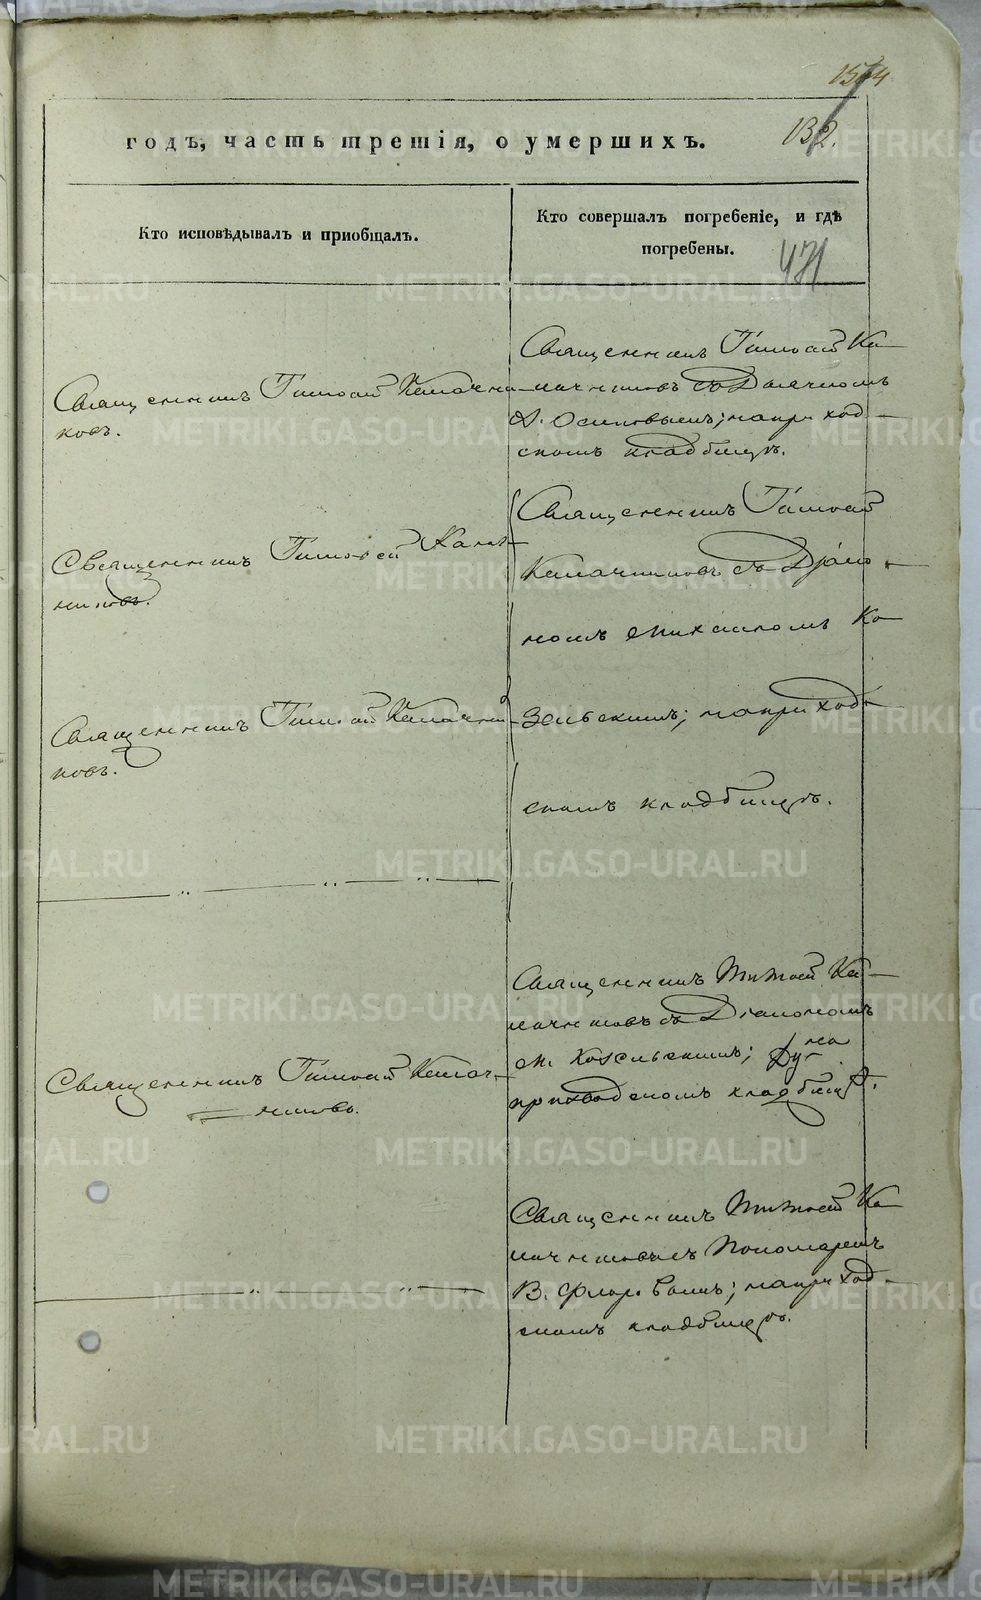 132.
годъ, часть третія, о умершихъ.
Кто исповѣдывалъ и приобщалъ.
Кто совершалъ погребеніе, и гдѣ
погребены.
471
Священникъ Тимофей Ка-
лачниковъ съ Дьячкомъ
А. Осиповымъ; на приход-
скомъ кладбищѣ.
Священникъ Тимофей Калачни-
ковъ.
Священникъ Тимофей
Калачниковъ съ Діако-
номъ Михаиломъ Ко-
зельскимъ; на приход-
скомъ кладбищѣ.
Священникъ Тимофей Калач-
никовъ.
Священникъ Тимофей Калачни-
ковъ.
Священникъ Тимофей Ка-
лачниковъ съ Діакономъ
М. Козельскимъ; на
приходскомъ кладбищѣ.
Священникъ Тимофей Калач-
никовъ.
Священникъ Тимофей Ка-
лачниковъ съ Пономаремъ
В. Флоровымъ; на приход-
скомъ кладбищѣ.
METRIKI.GASO-URAL.RU